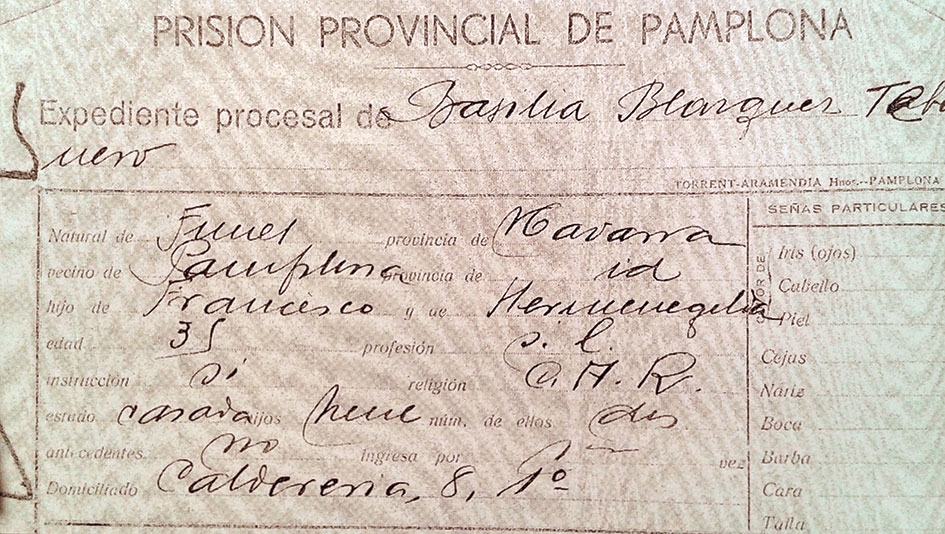 PRISION PROVINCIAL DE PAMPLONA
Expediente procesal de Basilia Blazquez Tab
uero
TORRENT-ARAMENDIA Hnos.--PAMPLONA
SEÑAS PARTICULARES
Natural de Funes provincia de Navarra
vecino de Pamplona provincia de id
hijo de Francisco y de Hermenegilda
edad 35 profesión s. l.
instrucción si religión C. A. R.
estado casada hijos tiene núm. de ellos dos
antecedentes no ingresa por 1ª vez
Domiciliado Caldereria, 8, 1º
COLOR DE
Iris (ojos)
Cabello
Piel
Cejas
Nariz
Boca
Barba
Cara
Talla